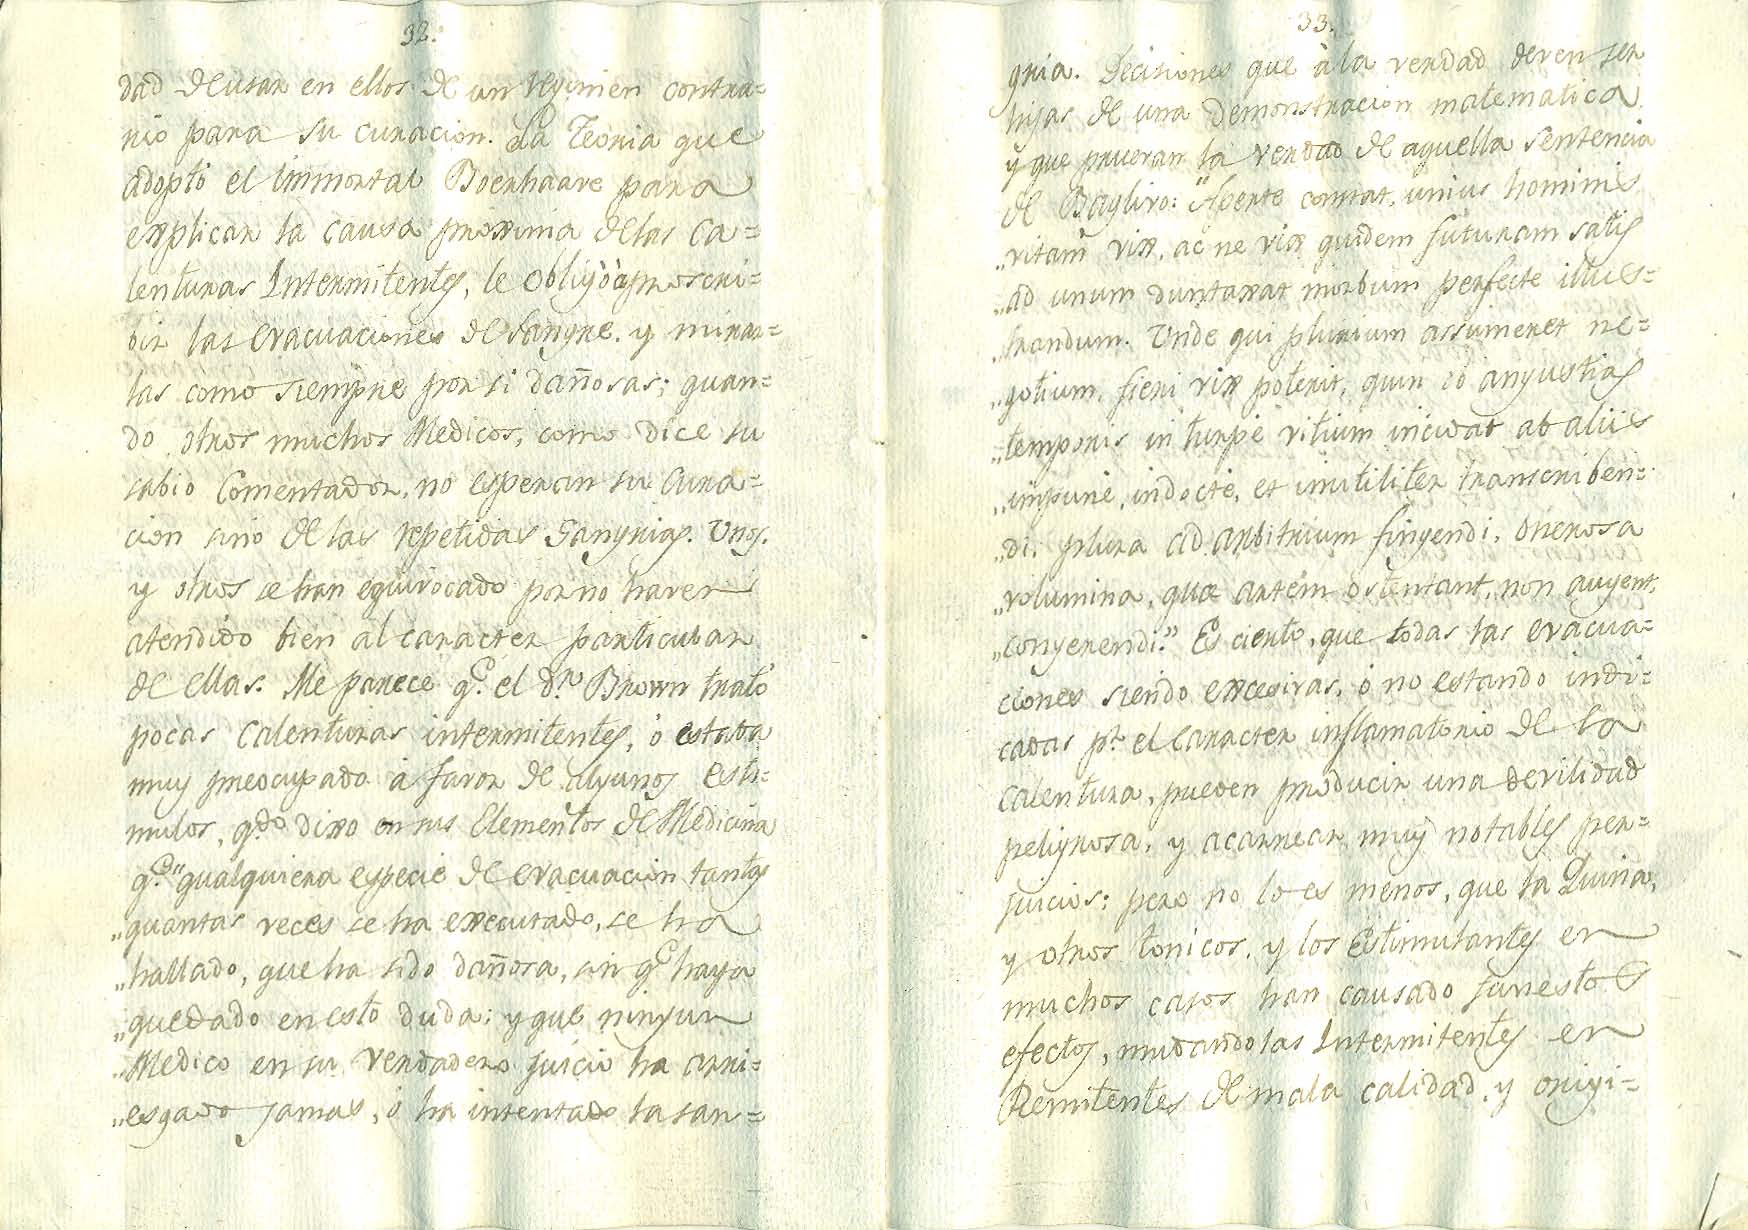 32.
dad de usar en ellos de un regimen contra=
rio para su curacion. La Teoria que
adoptó el immortal Boerhaave para
explicar la causa proxima de las Ca=
lenturas Intermitentes, le obligó à proscri=
bir las evacuaciones de sangre. y mirar=
las como siempre por si dañosas; quan=
do otros muchos Medicos, como dice su
sabio Comentador, no esperan su Cura=
cion sino de las repetidas Sangrias. Unos.
y otros se han equivocado por no haver
atendido bien al caracter particular
de ellas. Me parece qᵉ. el Dʳ. Brown trató
pocas Calenturas intermitentes, ó estaba
muy preocupado à favor de algunos esti=
mulos, qᵈᵒ dixo en sus Elementos de Medicina
qᵉ. "qualquiera especie de evacuacion tantas
„quantas veces se ha executado, se ha
„hallado, que ha sido dañosa, sin qᵉ haya
„quedado en esto duda; y que ningun
„Medico en su verdadero juicio ha arri=
„esgado jamas, ó ha intentado la san=
33.
gria. Decisiones que à la verdad deven ser
hijas de una demonstracion matematica.
y que prueran la verdad de aquella sentencia
de Baglivo: "Aperte constat, unius hominis
„vitam vix, ac ne vix quidem futuram satis
„ad unum duntaxat morbum perfecte illus=
„trandum. Unde qui plurium assumeret ne=
„gotium, fieri vix poterit, quin eò angustias
„temporis in turpe vitium incidat ab aliis
„impune, indocte, et inutiliter transcriben=
„di, plura ad arbitrium fingendi, onerosa
„volumina, quæ artem ostentant, non augent,
„congerendi." Es cierto, que todas las evacua=
ciones siendo excesivas, ó no estando indi=
cadas pʳ. el caracter inflamatorio de la
Calentura, pueden producir una devilidad
peligrosa, y acarrear muy notables per=
juicios; pero no lo es menos, que la Quina,
y otros tonicos, y los Estimulantes en
muchos casos han causado funestos
efectos, mudando las Intermitentes en
Remitentes de mala calidad, y origi=